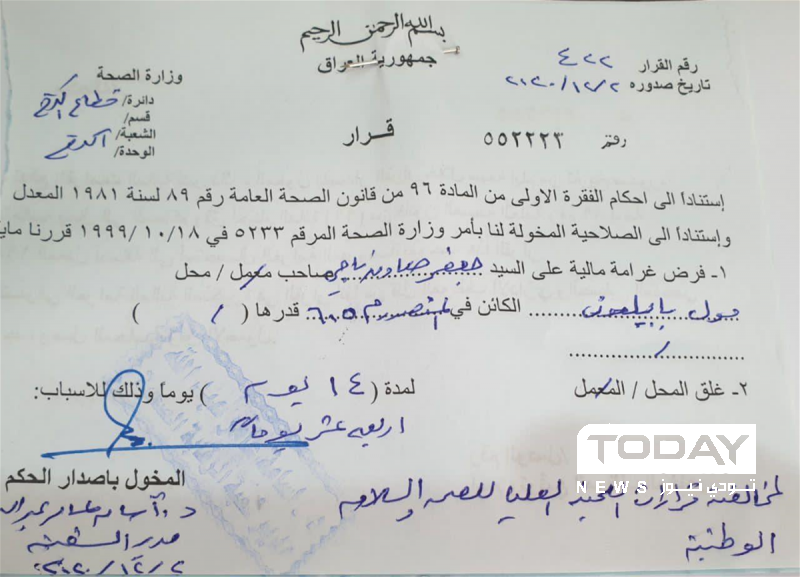 بسم الله الرحمن الرحيم
جمهورية العراق
رقم القرار ٤٢٢
تاريخ صدوره ٢٠٢٠/١٢/٢
وزارة الصحة
دائرة/ قطاع الكرخ
قسم/
الشعبة/ الكرخ
الوحدة/
رقم ٥٥٢٢٢٣
قرار
إستناداً الى احكام الفقرة الاولى من المادة ٩٦ من قانون الصحة العامة رقم ٨٩ لسنة ١٩٨١ المعدل
وإستناداً الى الصلاحية المخولة لنا بأمر وزارة الصحة المرقم ٥٢٣٣ في ١٨/ ١٠/ ١٩٩٩ قررنا ماي
١- فرض غرامة مالية على السيد جعفر صاحب معمل / محل
مول بابيلون الكائن في المنصور م ٦٠٥ قدرها ( / )
/
٢- غلق المحل / المعمل لمدة ( ١٤ يوم ) يوماً وذلك للاسباب:
اربعة عشر يوما
لمخالفته قرارات اللجنة العليا للصحة والسلامة
الوطنية
المخول باصدار الحكم
د.
مدير الشعبة
٢٠٢٠/١٢/٢
TODAY
NEWS تودي نيوز